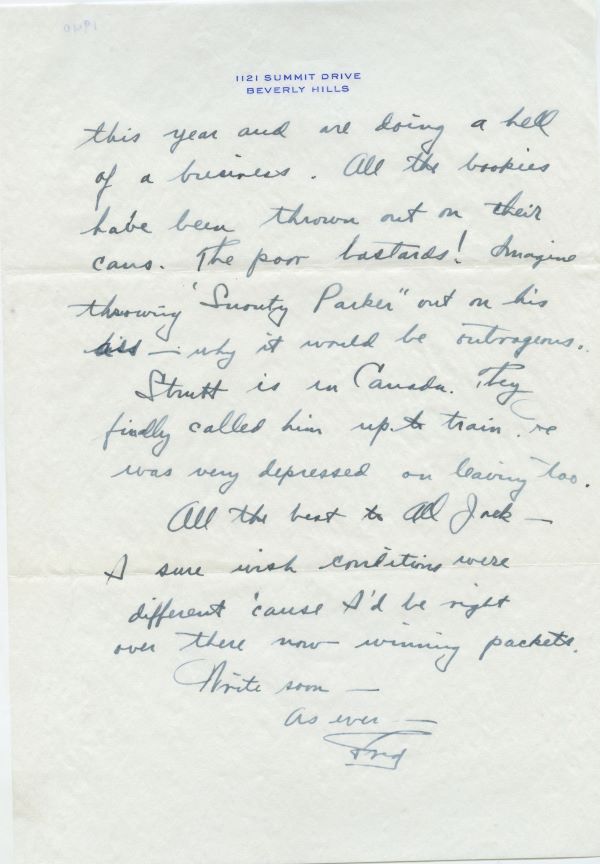 1121 SUMMIT DRIVE
BEVERLY HILLS
this year and are doing a hell
of a business. All the bookies
have been thrown out on their
cans. The poor bastards! Imagine
throwing "Snouty Parker" out on his
ass — why it would be outrageous.
Strutt is in Canada. They
finally called him up to train. He
was very depressed on leaving too.
All the best to all Jack —
I sure wish conditions were
different 'cause I'd be right
over there now winning packets.
Write soon —
As ever —
Fred